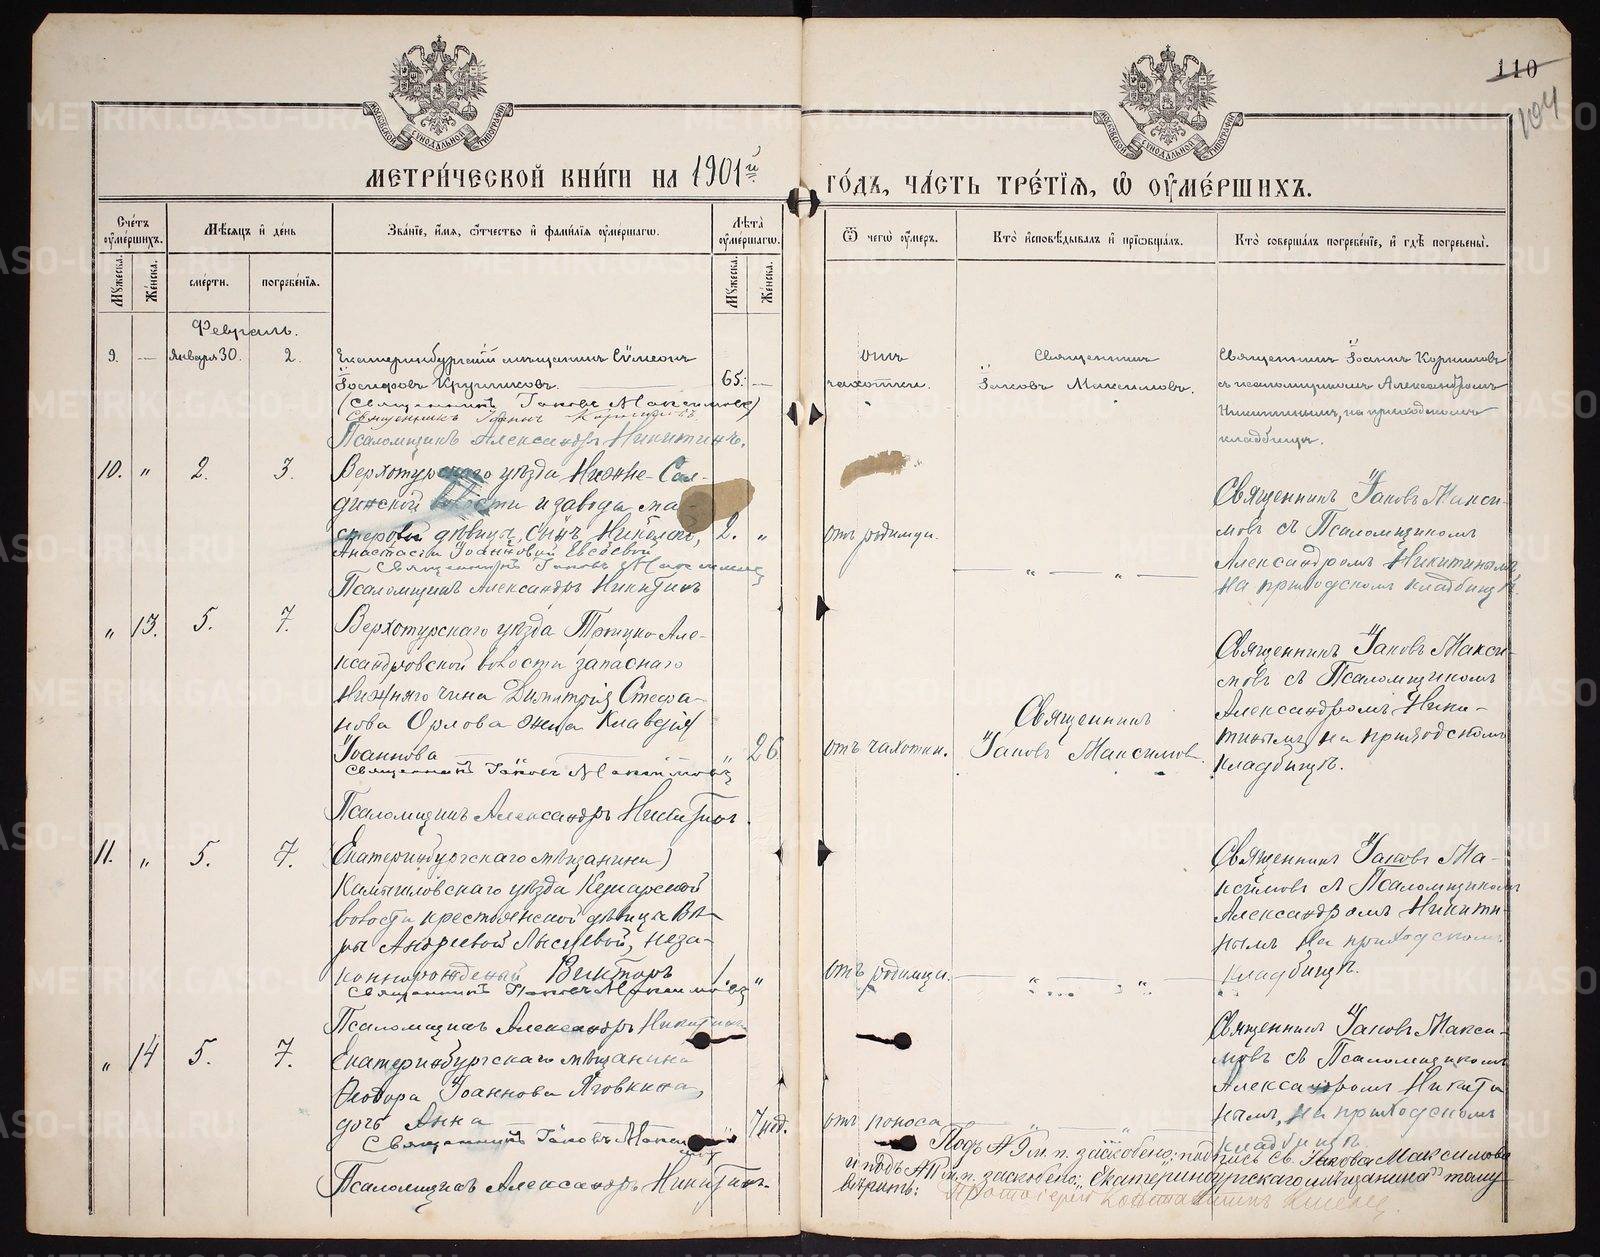 110
104
МЕТРИ́ЧЕСКОЙ КНИ́ГИ НА 1901й
ГО́ДЪ, ЧА́СТЬ ТРЕ́ТІѦ, Ѡ҆ ОУ҆МЕ́РШИХЪ.
Сче́тъ оу҆ме́ршихъ.
Мѣ́сяцъ и҆ де́нь
Зва́ніе, и҆́мя, ѻ҆́тчество и҆ фами́лія оу҆ме́ршагѡ.
Лѣ́та оу҆ме́ршагѡ.
Ѿ чегѡ̀ оу҆́меръ.
Кто̀ и҆сповѣ́дывалъ и҆ прїѡбща́лъ.
Кто̀ соверша́лъ погребе́нїе, и҆ гдѣ̀ погребены̀.
Му́жеска.
Же́нска.
сме́рти.
погребе́нїя.
Му́жеска.
Же́нска.
Февраль.
9. — Января 30. 2.
Екатеринбургскій мѣщанинъ Сѵмеонъ
Іосифовъ Кругликовъ. 65. —
(Священникъ Іаковъ Максимовъ)
Священникъ Іоаннъ Корниловъ
Псаломщикъ Александръ Никитинъ.
отъ
чахотки.
Священникъ
Іаковъ Максимовъ.
Священникъ Іоаннъ Корниловъ
съ псаломщикомъ Александромъ
Никитинымъ, на приходскомъ
кладбищѣ.
10. " 2. 3.
Верхотурскаго уѣзда Нижне-Сал-
динской волости и завода ма-
стеровой дѣвицы, сынъ Николай, 2. "
Анастасіи Іоанновой Евсѣевой
Священникъ Іаковъ Максимовъ
Псаломщикъ Александръ Никитинъ
отъ родимца.
— " — " —
Священникъ Іаковъ Макси-
мовъ съ Псаломщикомъ
Александромъ Никитинымъ
на приходскомъ кладбищѣ.
" 13. 5. 7.
Верхотурскаго уѣзда Троицко-Але-
ксандровской волости запаснаго
нижняго чина Димитрія Стефа-
нова Орлова жена Клавдія
Іоаннова " 26
Священникъ Іаковъ Максимовъ
Псаломщикъ Александръ Никитинъ.
отъ чахотки.
Священникъ
Іаковъ Максимовъ.
Священникъ Іаковъ Макси-
мовъ съ Псаломщикомъ
Александромъ Ники-
тинымъ, на приходскомъ
кладбищѣ.
11. " 5. 7.
(Екатеринбургскаго мѣщанина)
Камышловскаго уѣзда
волости крестьянской дѣвицы Вѣ-
ры Андреевой Лысцевой, неза-
коннорожденый Викторъ 1. "
Священникъ Іаковъ Максимовъ
Псаломщикъ Александръ Никитинъ
отъ родимца.
— " — " —
Священникъ Іаковъ Ма-
ксимовъ съ Псаломщикомъ
Александромъ Никити-
нымъ на приходскомъ
кладбищѣ.
" 14 5. 7.
Екатеринбургскаго мѣщанина
Ѳеодора Іоаннова Яговкина,
дочь Анна " 7 нед.
Священникъ Іаковъ Максимовъ
Псаломщикъ Александръ Никитинъ.
отъ поноса
Священникъ Іаковъ Макси-
мовъ съ Псаломщикомъ
Александромъ Никити
нымъ, на приходскомъ
кладбищѣ.
Подъ № 9 м. п. заскоблено: подпись св. Іакова Максимова
и подъ № 11 м. п. заскоблено: „Екатеринбургскаго мѣщанина" тому
вѣрить: Протоіерей Константинъ